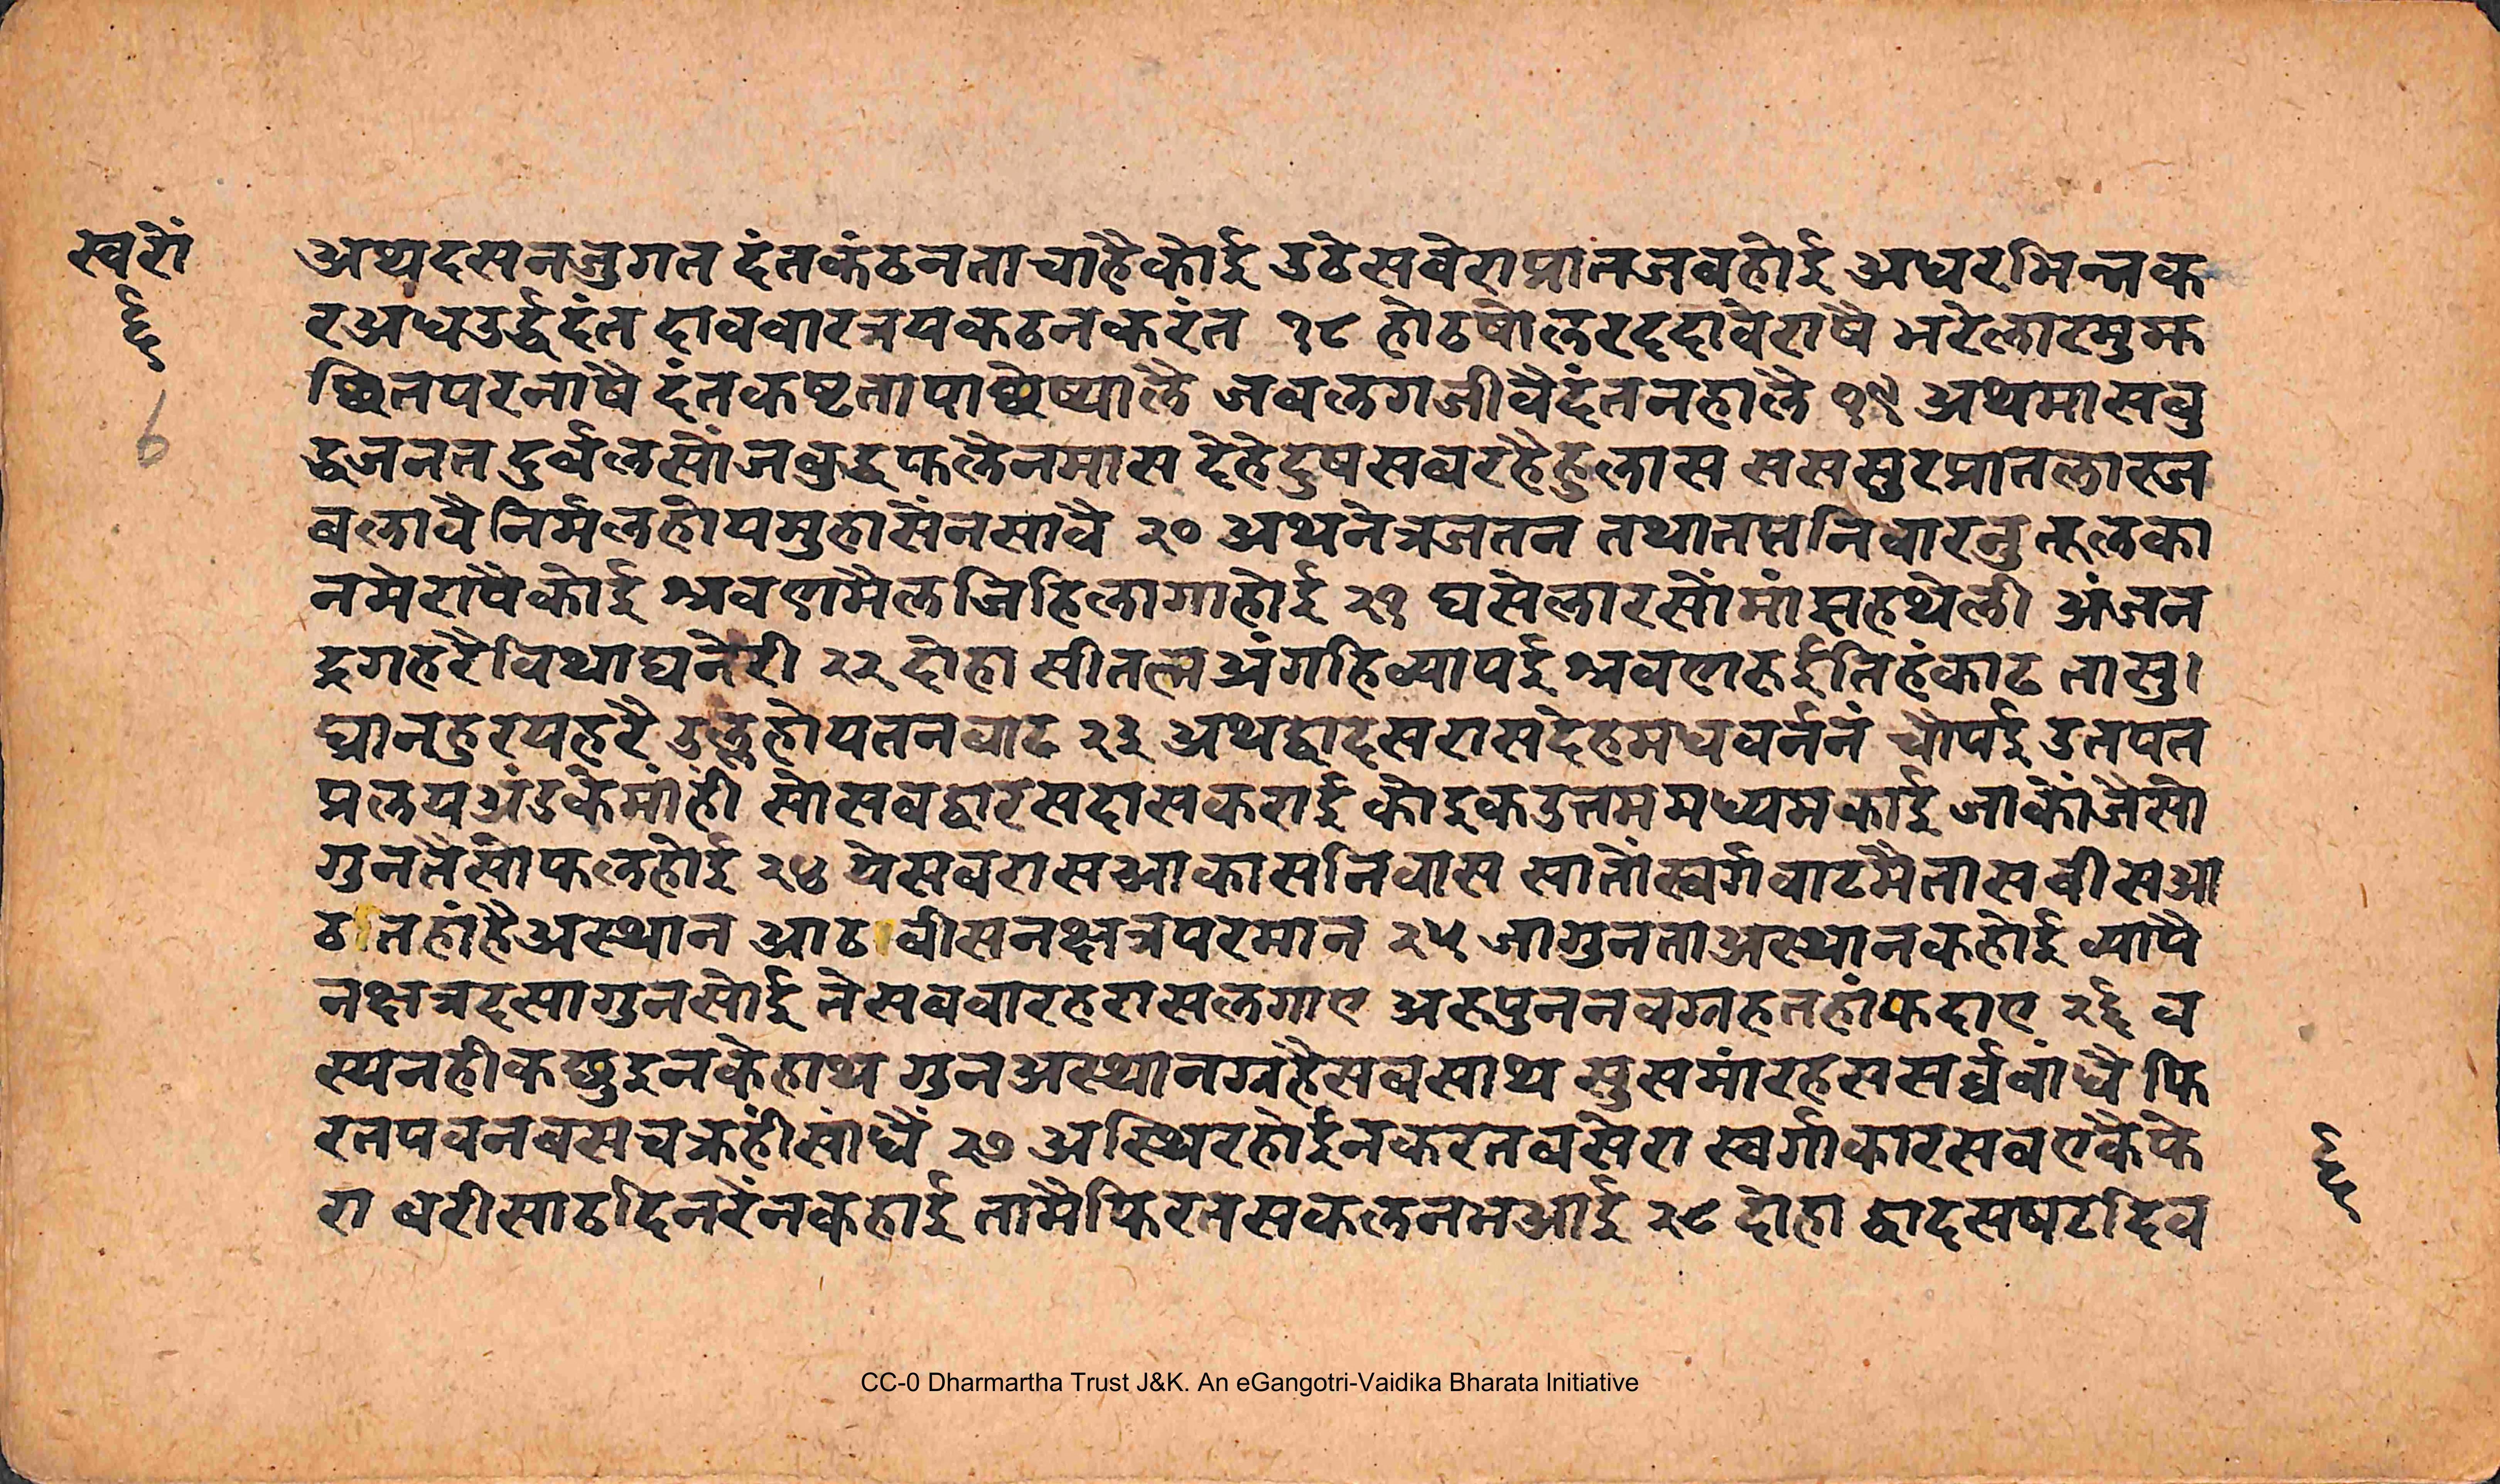 स्वरो
६
6
अथदसनजुगत दंतकंठनताचाहैकोई उठेसवेराप्रातजवहोई अधरभिन्नक
रअधउर्द्धदंत दाववारत्रयकठनकरंत १८ होठषोलरददांवेराषै भरेलाटमुम्
छितपरनाषै दंतकष्टतापाछेष्यालै जवलगजीवैदंतनहालै १९ अथमासवु
द्धजनत दुर्वलसोंजवुद्धफलैनमास देहेदुषसवरहैहुलास ससस्रुटप्रातलारज
वलावै निर्मलहोयमुहासेंनसावै २० अथनेत्रजतन तथातप्तनिवारनु तूलका
नमेराषैकोई श्रवणमैलजिहिलागाहोई २१ घसेलारसोंमांझहथेली अंजन
दृगहरैविथाघनेरी २२ दोहा सीतलअंगहिव्यापई श्रवणरुईतिहंकाढ तासु।
घ्रानहुरयहरै उलुहोयतनवाढ २३ अथद्वादसरासदेहमधवर्ननं चौपई उतपत
प्रलयअंडकेमांहीं सोसवद्वारसदासकराई कोइकउतममध्यमकाई जाकोंजैसो
गुनतैसोफलहोई २४ येसवरासआकासनिवास सातोंस्वर्गवाटमैतास वीसआ
ठतहांहैअस्थान आठवीसनक्षत्रपरमान २५ जागुनताअस्थानकहोई व्यापै
नक्षत्रदसागुनसोई तेसववारहरासलगाए अरुपुननवग्रहतहांफदाए २६ व
स्यनहीकछुइनकेहाथ गुनअस्थानग्रहैसवसाथ सुसमांरहससर्ववांधै फि
रतपवनवसचक्रहींसांधैं २७ अस्थिरहोईनकरतवसेरा स्वर्गाकारसवएकैफे
रा धरीसाठदिनरेंनकहाई तामैफिरतसकलनभआई २८ दोहा द्वादसषटदिव
६
CC-0 Dharmartha Trust J&K. An eGangotri-Vaidika Bharata Initiative